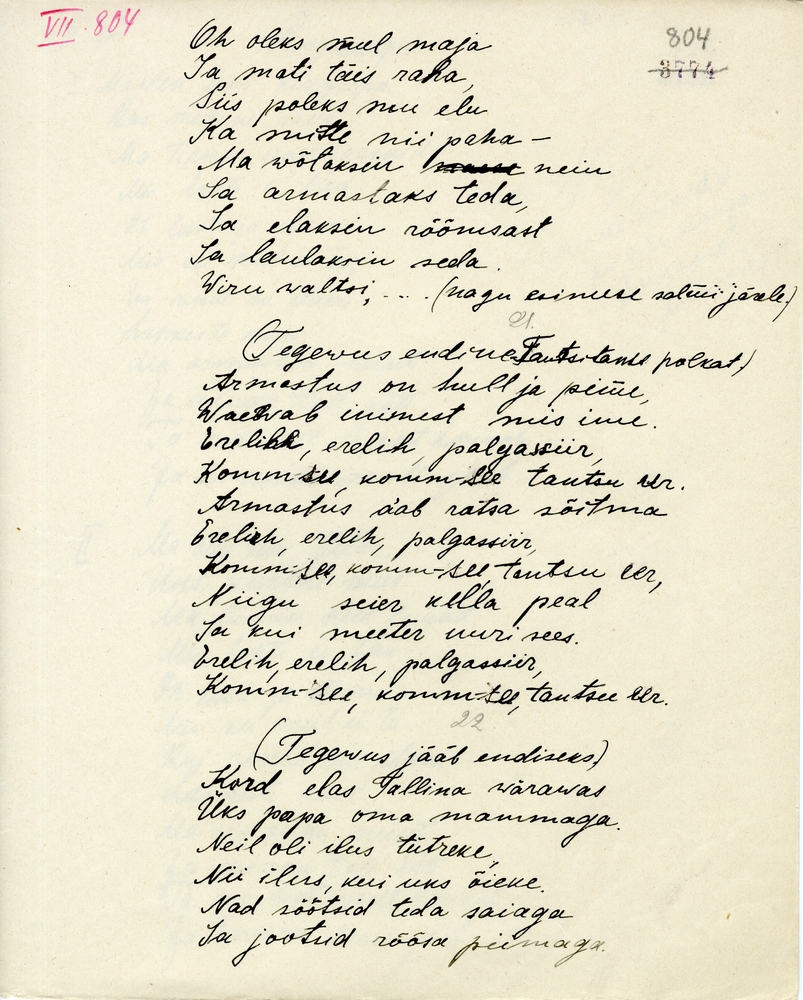 VII. 804
804
3774
Oh oleks mul maja
Ja mati täis raha,
Siis poleks mu elu
Ka mitte nii paha —
Ma wõtaksin nein
Ja armastaks teda,
Ja elaksin rõõmsast
Ja laulaksin seda.
Wiru waltsi, ... (nagu esimese salmi järele.)
21.
(Tegewus endine. Tantsitakse polkat.)
Armastus on hull ja pime,
Waewab inimest mis ime.
Erelihh, erelih, palgassiir,
Komm-see, komm-see tantsu eer.
Armastus aab ratsa sõitma
Erelih, erelih, palgassiir,
Komm-see, komm-see, tantsu eer,
Niigu seier kella peal
Ja kui meeter uuri sees.
Erelih, erelih, palgassiir,
Komm-see, komm-see, tantsu eer.
22
(Tegewus jääb endiseks.)
Kord elas Tallina wärawas
Üks papa oma mammaga.
Neil oli ilus tütreke,
Nii ilus, kui uks õieke.
Nad söötsid teda saiaga
Ja jootsid rõõsa piimaga.